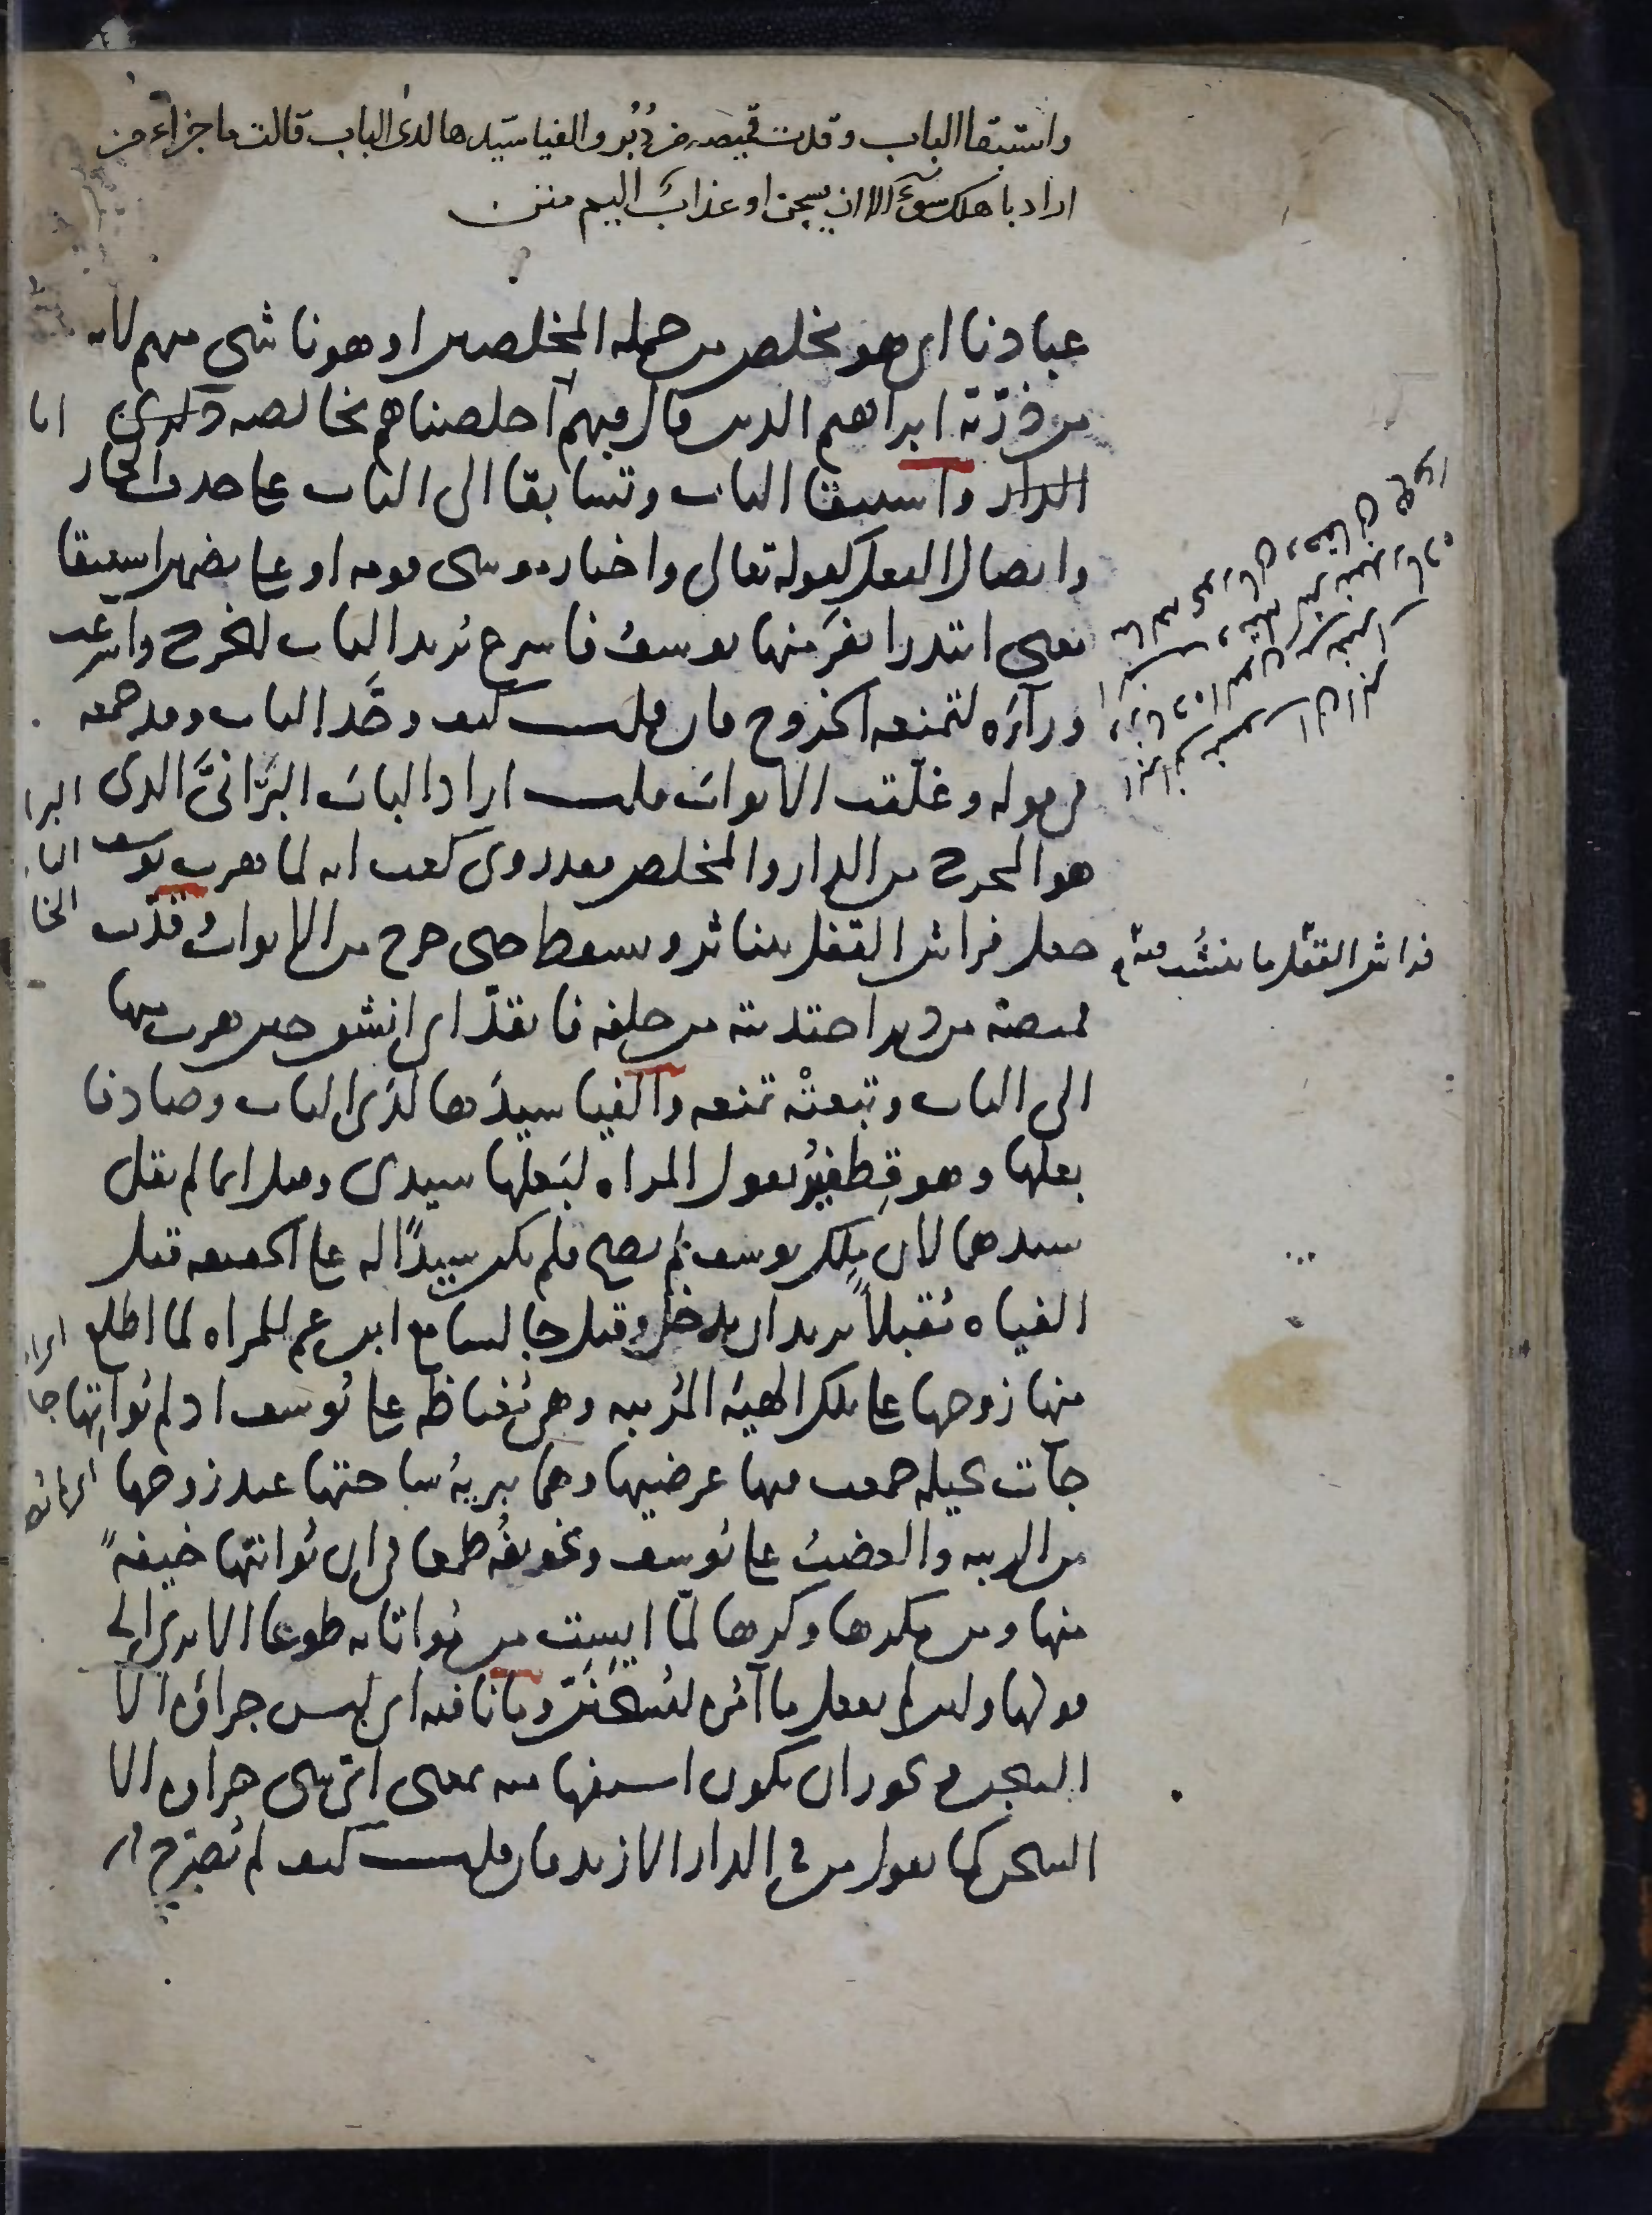 واستبقا الباب وقدت قميصه من دُبُرٍ والفيا سَيِّدها لدى الباب قالت ما جزاء من
اراد باهلك سوءً الا ان يسجن او عذابٌ اليم متن
عبادنا اى هو مخلص من جمله المخلصين او هو ناشى منهم لانه
من ذرّية ابراهيم الذين قال فيهم اخلصناهم بخالصه ذكرى
انا
الدار واستبقا الباب وتسابقا الى الباب على حذف الجار
وايصال الفعل كقوله تعالى واختار موسى قومه او على تضمين استبقا
معنى ابتدرا نفرَ منها يوسفُ فاسرع يُريد الباب ليخرج واسرعت
ورآءَه لتمنعه الخروج فان قلت كيف وحَّد الباب وقد جمعه
فى قوله وغلّقت الابوابَ قلت اراد البابَ البَرّانىَّ الذى
البرا
هو المخرج من الدار والمخلص فقد روى كعب انه لما هرب يوسف
جعل فراش القفل يتناثر ويسقط حتى خرج من الابواب وقدّت
فراش القفل ما ينشب فيه
قميصَه من دبر اجتذبته من خلفه فانقدّ اى انشق حين هرب منها
الى الباب وتبعتْه تمنعه والفيا سيدَها لدَى الباب وصادفا
بعلها وهو قِطفيرُ تقول المراه لبَعلها سيدى وقيل انما لم يقل
سيدهما لان مِلك يوسف لم يصح فلم يكن سيدًا له على الحقيقه قيل
الفياه مُقبلًا يريد ان يدخل وقيل جالسا مع ابن عم للمراه لما اطلع
منها زوجها على تلك الهيئة المُريبه وهى مُغتاظه على يُوسف اذ لم يُواتِها
جآت بحيله جمعت فيها غرضيها وهما تبريةُ ساحتها عند زوجها
من الريبه والغضبُ على يُوسف وتخويفُه طمعا فى ان يُواتيها خيفةً
منها ومن مكرها وكرها لمّا ايست من مُواتاته طوعا الا ترى الى
قولها ولئن لم يفعل ما آمُره ليُسجَنَنَّ وما نافيه اى ليس جزاؤه الا
السجن ويجوز ان تكون استفهاميه بمعنى اىّ شى جزاوه الا
السجن كما تقول من فى الدار الا زيد فان قلت كيف لم تُصَرّح فى